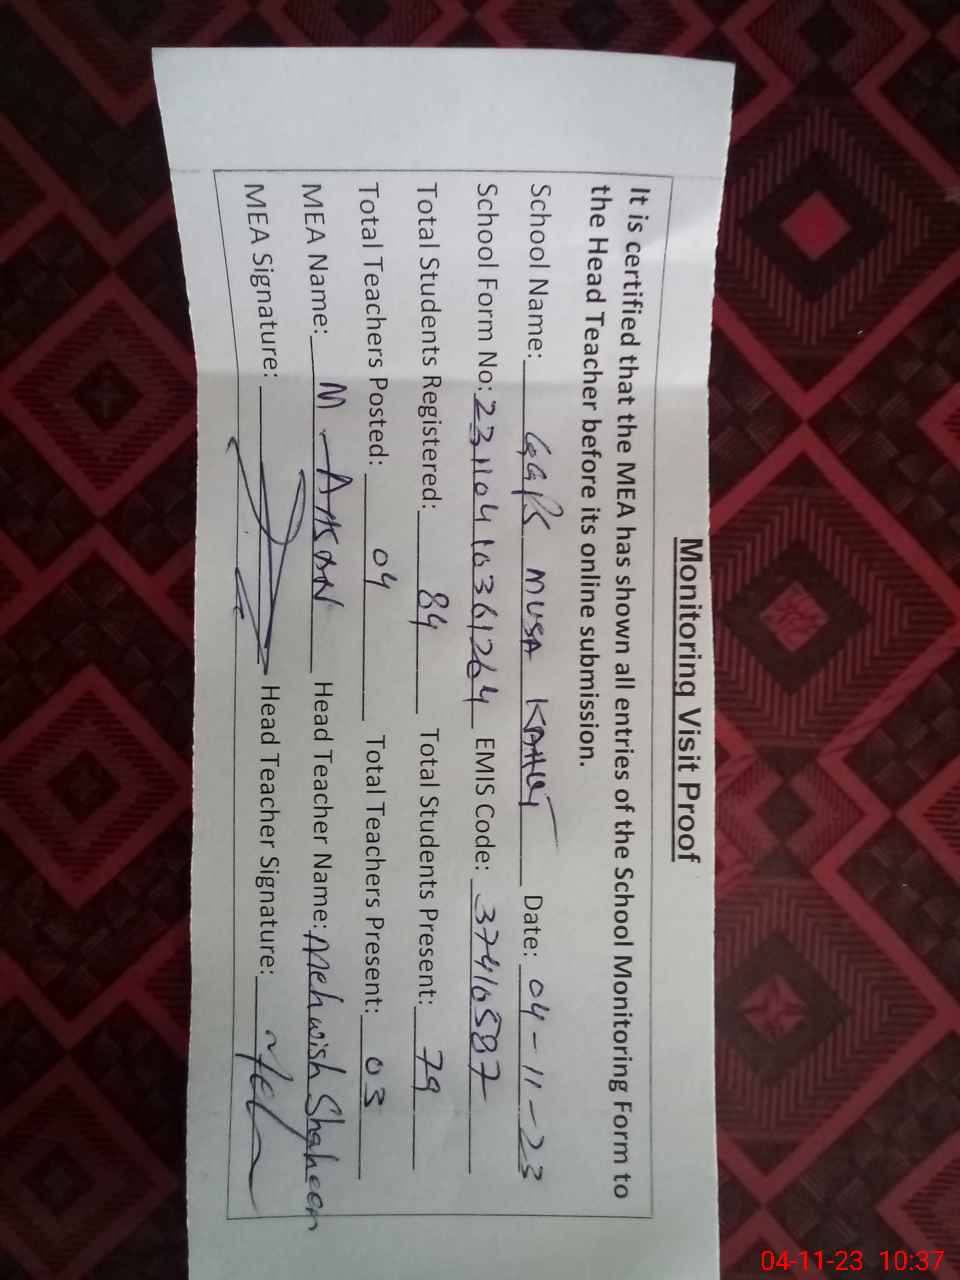 Monitoring Visit Proof
It is certified that the MEA has shown all entries of the School Monitoring Form to
the Head Teacher before its online submission.
School Name: GGPS MUSA Date: 04-11-23
School Form No: 23110410361264 EMIS Code: 37410587
Total Students Registered: 84 Total Students Present: 79
Total Teachers Posted: 04 Total Teachers Present: 03
MEA Name: M AHSAN Head Teacher Name: Mehwish Shaheen
MEA Signature: Head Teacher Signature:
04-11-23 10:37